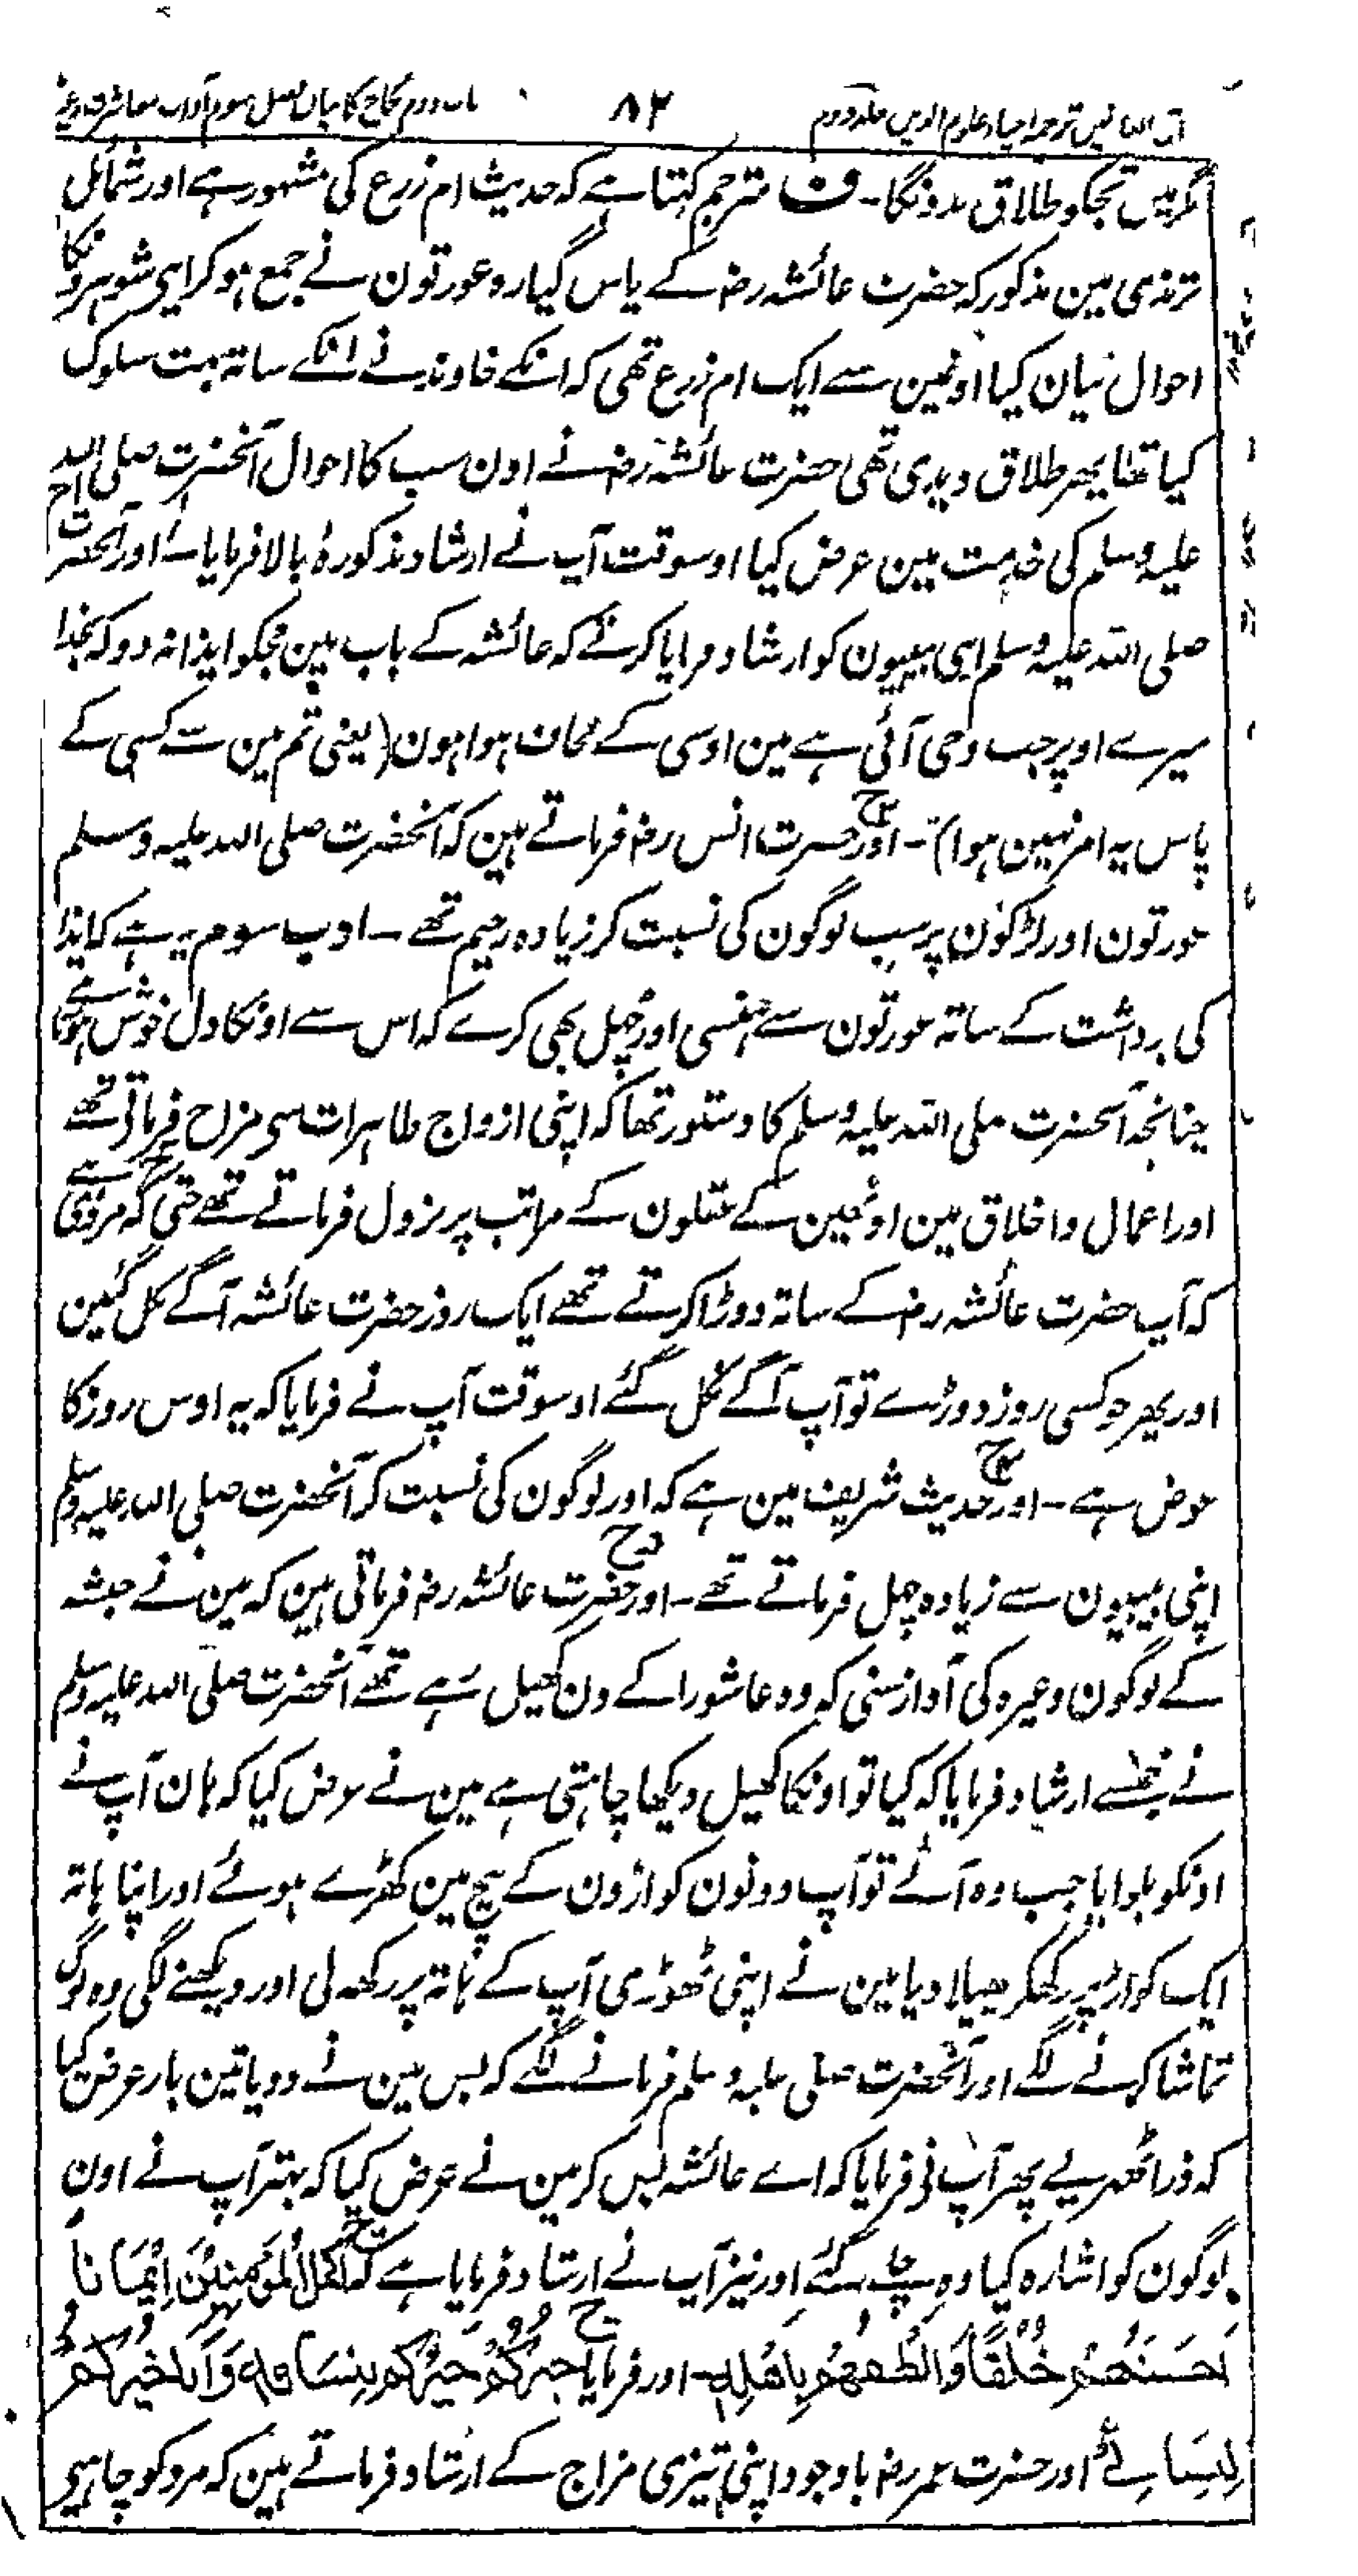 مذاق العارفین ترجمہ احیاء علوم الدین جلد دوم ۸۲ باب دوم نکاح کا بیان فصل سوم آداب معاشرت وغیرہ
مگر میں تجکو طلاق ندونگا۔ ف مترجم کہتا ہے کہ حدیث ام زرع کی مشہور ہے اور شمائل
ترمذی مین مذکور کہ حضرت عائشہ رضہ کے پاس گیارہ عورتون نے جمع ہو کر اپنی شوہرونکا
احوال بیان کیا اونمین سے ایک ام زرع تھی کہ انکے خاوند نے انکے ساتہ بہت سلوک
کیا تھا پھر طلاق دیدی تھی حضرت عائشہ رضہ نے اون سب کا احوال آنحضرت صلی اللہ
علیہ وسلم کی خدمت مین عرض کیا اوسوقت آپ نے ارشاد مذکورۂ بالا فرمایا اور آنحضرت
صلی اللہ علیہ وسلم اپنی بیبیون کو ارشاد فرمایا کرتے کہ عائشہ کے باب مین مجکو ایذا نہ دو کہ بخدا
میرے اوپر جب وحی آئی ہے مین اوسی کے لحاف ہوا ہون (یعنی تم مین سے کسی کے
پاس یہ امر نہین ہوا)۔ اور حضرت انس رضہ فرماتے ہین کہ آنحضرت صلی اللہ علیہ وسلم
عورتون اور لڑکون پر سب لوگون کی نسبت کر زیادہ رحیم تھے۔ ادب سوم یہ ہے کہ ایذا
کی برداشت کے ساتہ عورتون سے ہنسی اور چہل بھی کرے کہ اس سے اونکا دل خوش ہوتا ہے
چنانچہ آنحضرت صلی اللہ علیہ وسلم کا دستور تھا کہ اپنی ازواج طاہرات سی مزاح فرماتے تھے
اور اعمال و اخلاق مین اونھین کے عقلون کے مراتب پر نزول فرماتے تھے حتی کہ مروی ہے
کہ آپ حضرت عائشہ رضہ کے ساتہ دوڑا کرتے تھے ایک روز حضرت عائشہ آگے نکل گئین
اور پھر جو کسی روز دوڑے تو آپ آگے نکل گئے اوسوقت آپ نے فرمایا کہ یہ اوس روز کا
عوض ہے۔ اور حدیث شریف مین ہے کہ اور لوگون کی نسبت کر آنحضرت صلی اللہ علیہ وسلم
اپنی بیبیون سے زیادہ چہل فرماتے تھے۔ اور حضرت عائشہ رضہ فرماتی ہین کہ مین نے حبشہ
کے لوگون وغیرہ کی آواز سنی کہ وہ عاشورا کے دن کھیل رہے تھے آنحضرت صلی اللہ علیہ وسلم
نے مجھسے ارشاد فرمایا کہ کیا تو اونکا کھیل دیکھا چاہتی ہے مین نے عرض کیا کہ ہان آپ نے
اونکو بلوایا جب وہ آئے تو آپ دونون کواڑون کے بیچ مین کھڑے ہوئے اور اپنا ہاتہ
ایک کواڑ پر رکھکر پھیلا دیا مین نے اپنی ٹھوڑی آپ کے ہاتہ پر رکھ لی اور دیکھنے لگی وہ لوگ
تماشا کرنے لگے اور آنحضرت صلی علیہ وسلم فرمانے لگے کہ بس مین نے دو یا تین بار عرض کیا
کہ ذرا ٹھہریے پھر آپ نی فرمایا کہ اے عائشہ بس کر مین نے عرض کیا کہ بہتر آپ نے اون
لوگون کو اشارہ کیا وہ چلے گئے اور نیز آپ نے ارشاد فرمایا ہے کہ اَکْمَلُ الْمُؤْمِنِیْنَ اِیْمَانًا
اَحْسَنُھُمْ خُلُقًا وَاَلْطَفُھُمْ بِاَھْلِہٖ۔ اور فرمایا خَیْرُکُمْ خَیْرُکُمْ لِنِسَائِہٖ وَاَنَا خَیْرُکُمْ
لِنِسَائِیْ اور حضرت عمر رضہ باوجود اپنی تیزی مزاج کے ارشاد فرماتے ہین کہ مرد کو چاہیی